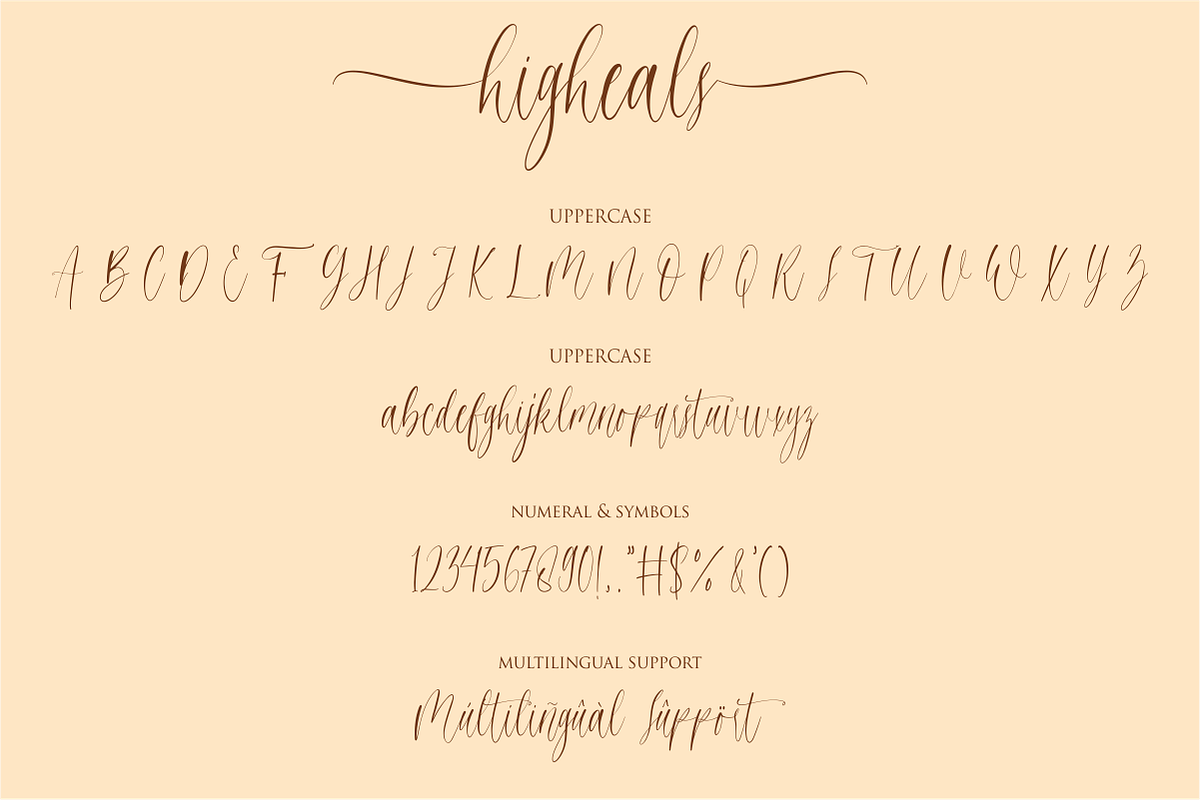 higheals
UPPERCASE
A B C D E F G H I J K L M N O P Q R S T U V W X Y Z
UPPERCASE
abcdefghijklmnopqrstuvwxyz
NUMERAL & SYMBOLS
1234567890!,."#$%&'()
MULTILINGUAL SUPPORT
Múltiliñgûàl Sûppört